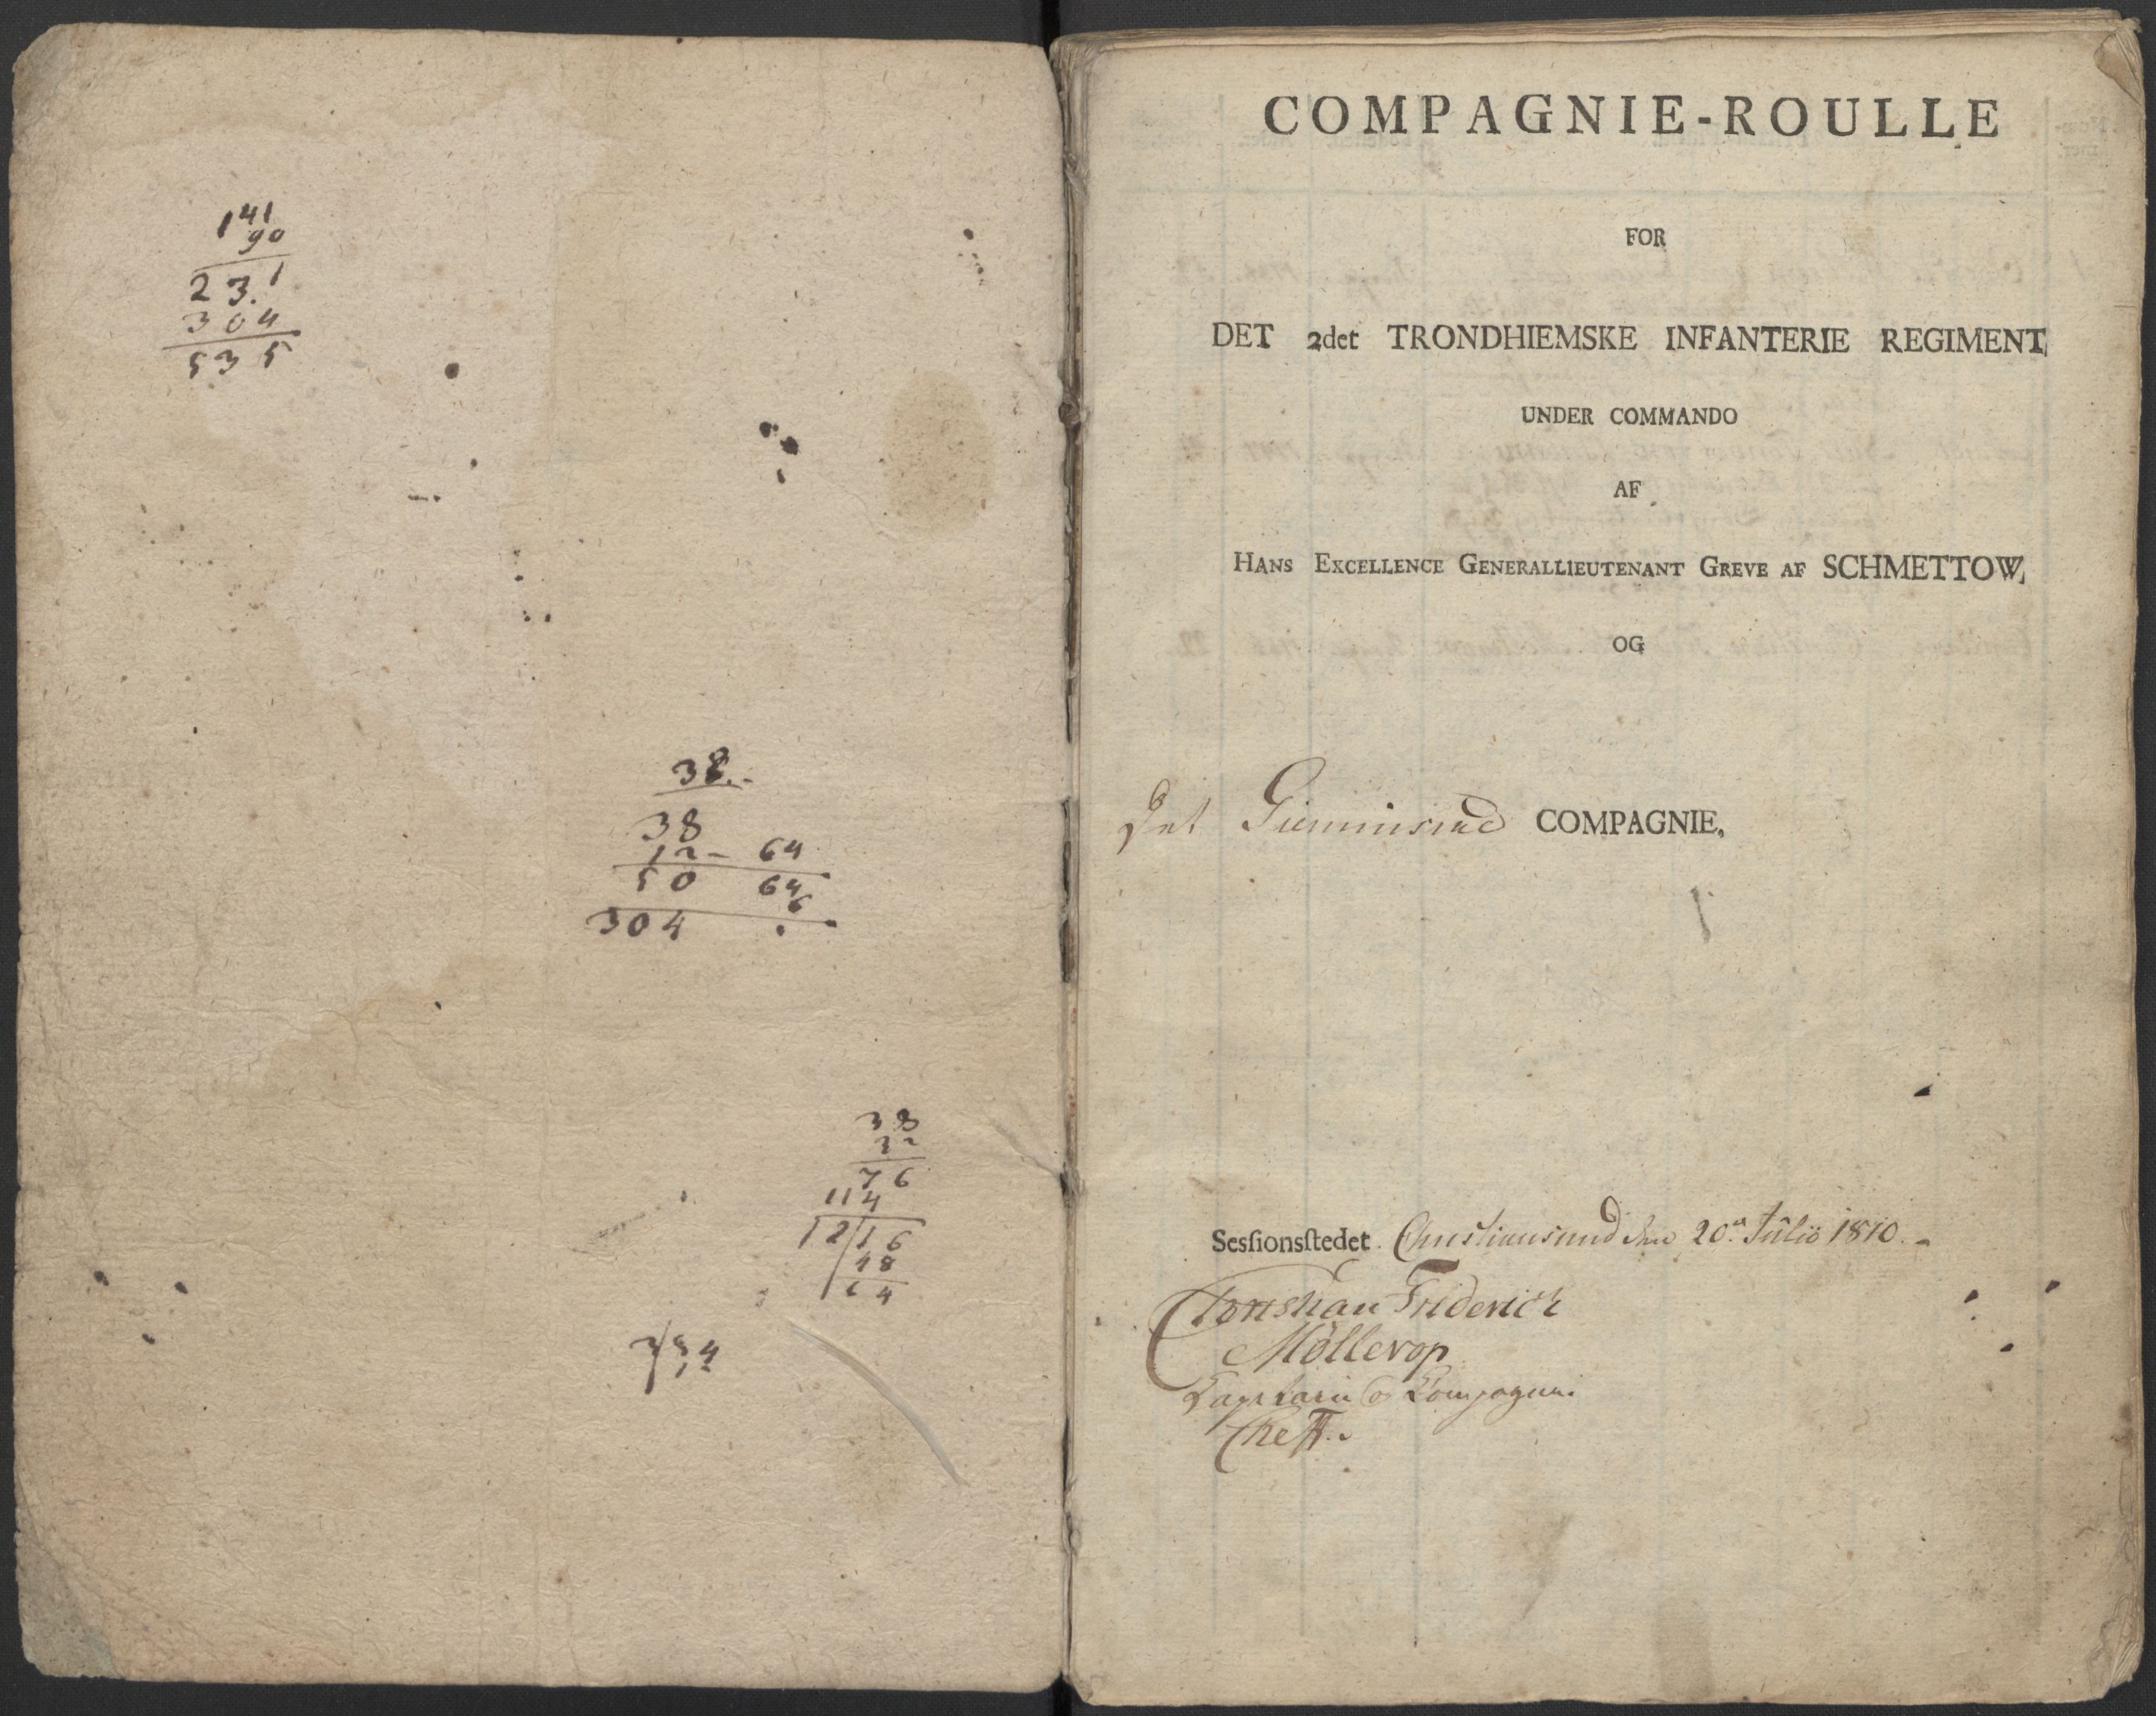 141
90
23.1
304
535
38.-
38
12- 64
50 64
6
304 .
38
32
76
114
1216
18
64
COMPAGNIE-ROULLE
FOR
DET 2det TRONDHIEMSKE INFANTERIE REGIMENT
UNDER COMMANDO
AF
HANS EXCELLENCE GENERALLIEUTENANT GREVE AF SCHMETTOW,
OG
Det COMPAGNIE,
Sesſionsſtedet Christiansund den 20. Julii 1810.-
Friderich
Möllerop
Compagnie
Cheff.